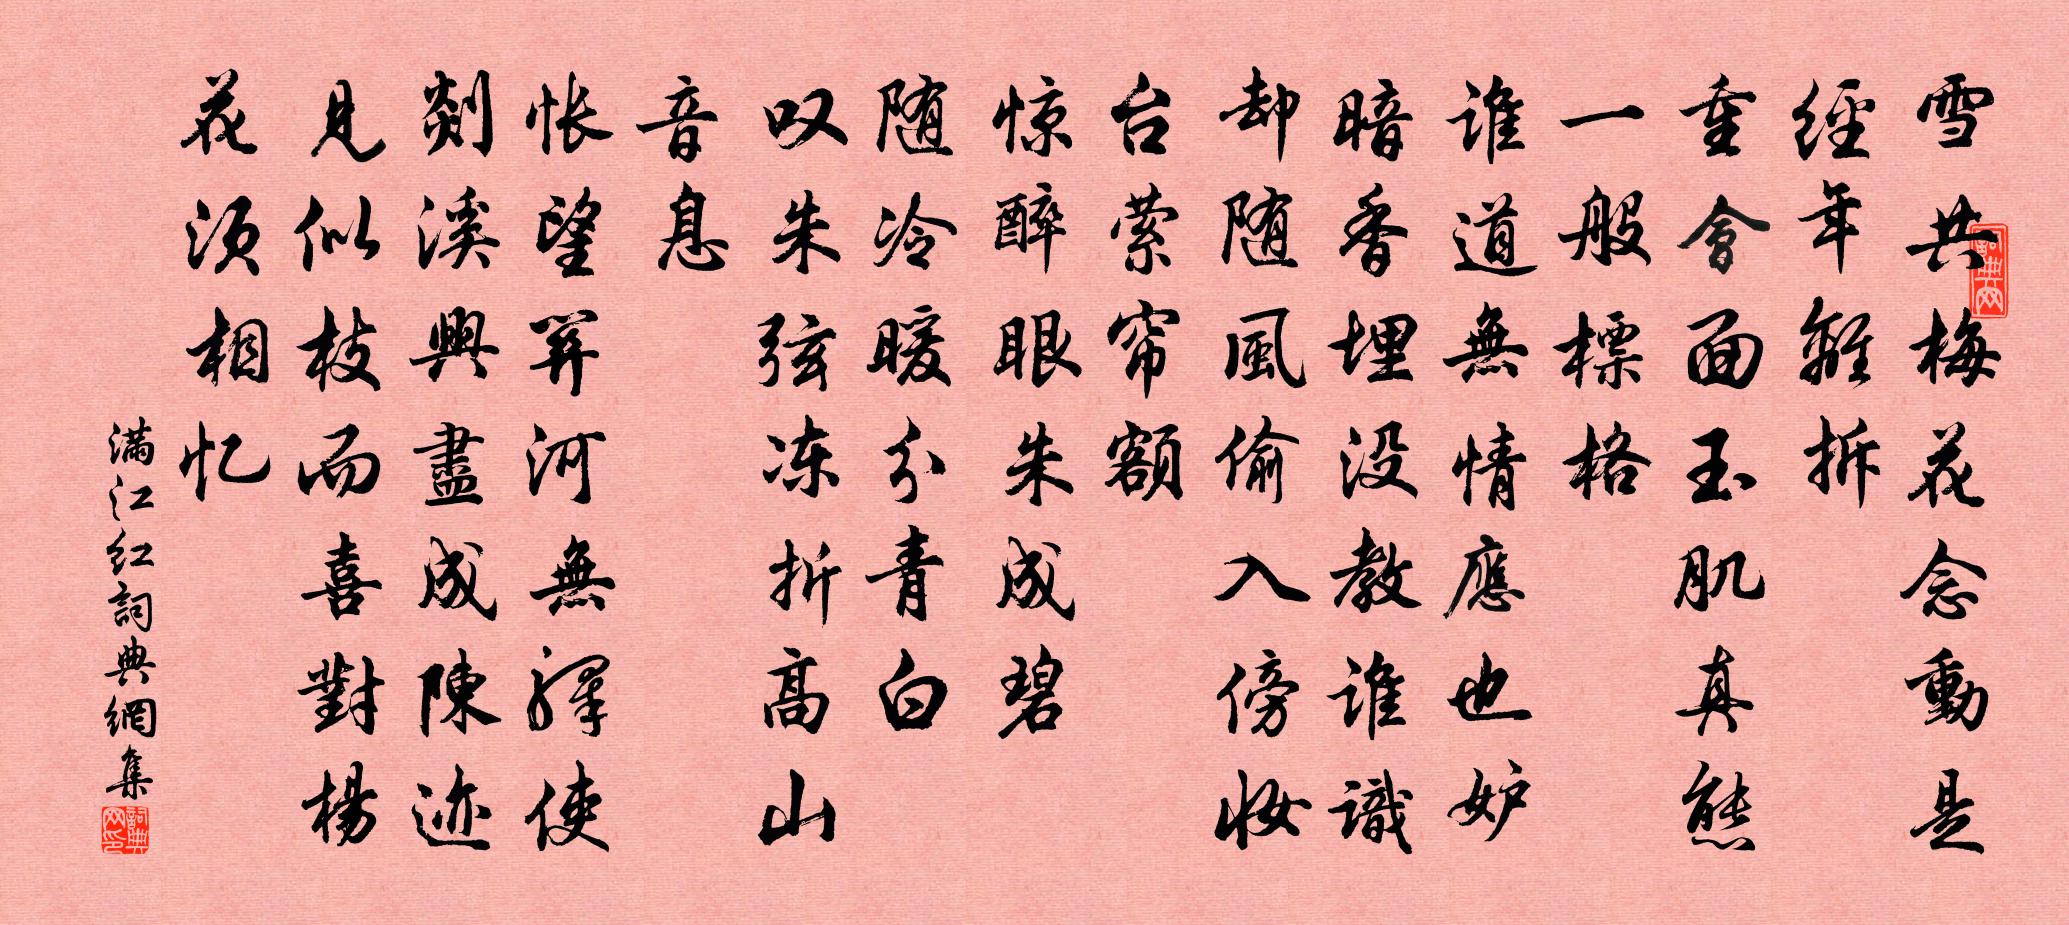 雪共梅花念動是
經年離拆
重會面玉肌真態
一般標格
誰道無情應也妒
暗香埋没教誰識
却随風偷入傍妝
台萦帘額
惊醉眼朱成碧
随冷暖分青白
叹朱弦冻折高山
音息
怅望關河無驛使
剡溪興盡成陳迹
見似枝而喜對楊
花须相忆
满江红詞典網集
詞典网
詞典网印